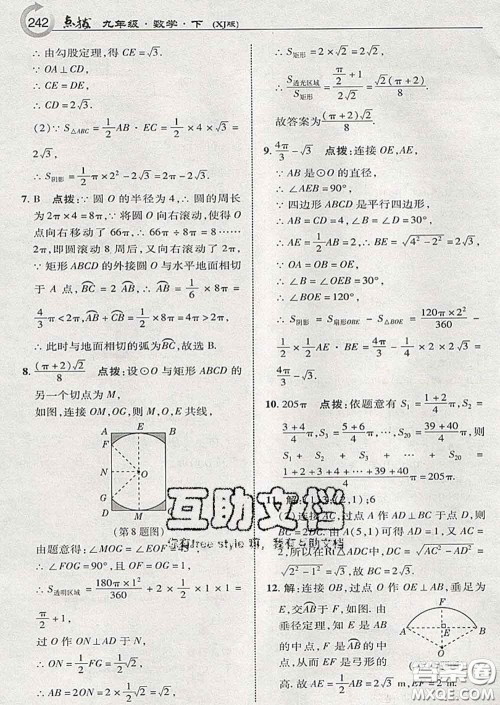 242 点拨 九年级·数学·下 (XJ版)
∴由勾股定理,得CE=√3.
∵OA⊥CD,
∴CE=DE,
∴CD=2√3.
(2)∵S△ABC=1/2 AB·EC=1/2×4×√3=
2√3,
∴S阴影=1/2 π×2²-2√3=2π-2√3.
7. B 点拨:∵圆O的半径为4,∴圆的周长
为2π×4=8π,∵将圆O向右滚动,使得点
O向右移动了66π,∴66π÷8π=8……
2π,即圆滚动8周后,又向右滚动了2π,
∵矩形ABCD的外接圆O与水平地面相切
于A点,BC=2π,AB=1/6×8π=
4/3 π<2π,AB+BC=4/3 π+2π=10/3 π>
2π,
∴此时与地面相切的弧为BC.故选B.
8. (π+2)√2/8 点拨:设⊙O与矩形ABCD的
另一个切点为M,
如图,连接OM,OG,则M,O,E共线,
A E B
F
O
D M C
(第8题图)
由题意得:∠MOG=∠EOF=45°,
∴∠FOG=90°,且OF=OG=1,
∴S透明区域=180π×1²/360+2×1/2×1×1=
π/2+1,
过O作ON⊥AD于N,
∴ON=1/2 FG=√2/2,
∴AB=2ON=2×√2/2=√2,
∴S矩形=
∴S透光区域/S矩形=(π/2+1)/(2√2)=(π+2)√2/8.
故答案为(π+2)√2/8.
9. 4π/3-√3 点拨:连接OE,AE,
∵AB是⊙O的直径,
∴∠AEB=90°,
∵四边形ABCD为平行四边形,
∴AE=1/2 AB=2,BE=√(4²-2²)=2√3,
∵OA=OB=OE,
∴∠BOE=120°,
∴S阴影=S扇形OBE-S△BOE=120π×2²/360-
1/2×1/2 AE·BE=4π/3-1/4×2×2√3=
4π/3-√3.
10. 205π 点拨:依题意有S₁=(1+2)/4 π,S₂=
(3+4)/4 π,S₃=(5+6)/4 π,…,S₂₀=(39+40)/4 π,
∴
(3+4)/4 π+(5+6)/4 π+…+(39+40)/4 π=205π.
(2)连接AC,过点D作
互助文档
12. 解:连接OB,过点O作OE⊥AB,垂足为
E,交AB于F,如图.由
垂径定理,可知E是AB
的中点,F是AB的中
点,∴EF是弓形的
高.故AE=1/2 AB=2√3 m,EF=
F
A E B
O
答案圈
MXQE.COM